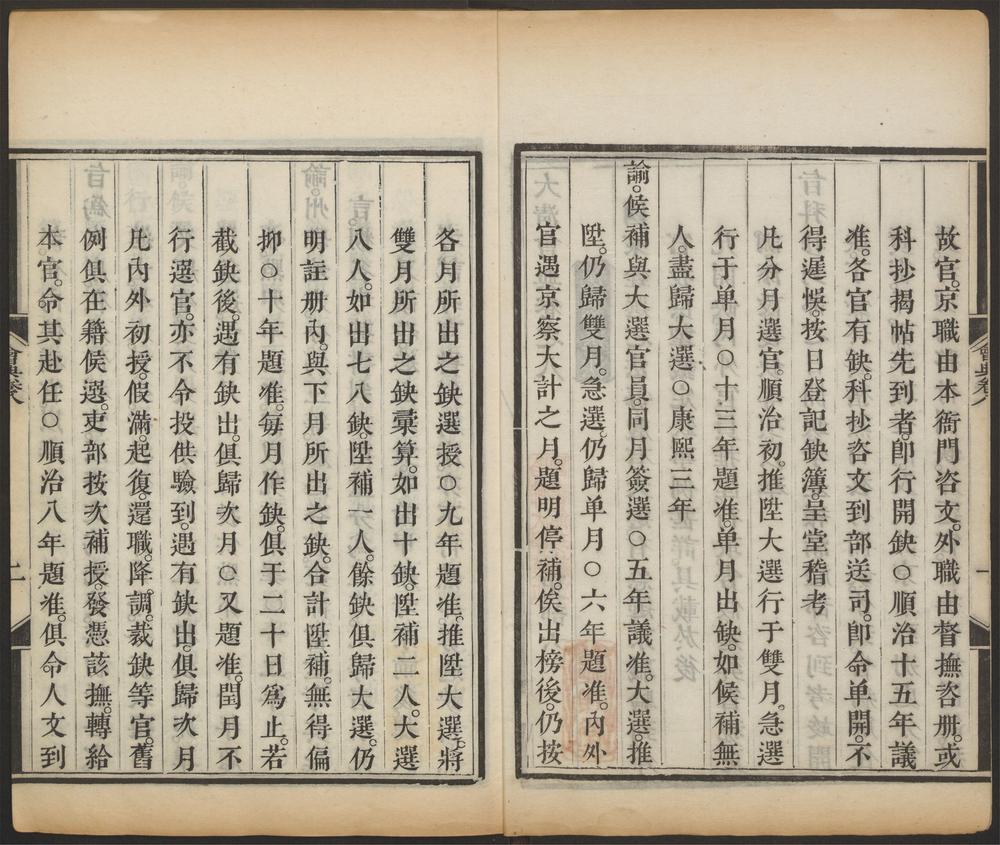 故官。京職由本衙門咨文。外職由督撫咨册。或
科抄揭帖先到者。卽行開缺○順治十五年議
准。各官有缺。科抄咨文到部送司。卽命单開。不
得遲悞。按日登記缺簿。呈堂稽考
凡分月選官。順治初。推陞大選行于雙月。急選
行于单月○十三年題准。单月出缺。如候補無
人。盡歸大選○康熙三年
諭。候補與大選官員。同月簽選○五年議准。大選。推
陞。仍歸雙月。急選。仍歸单月○六年題准。內外
官遇京察大計之月。題明停補。俟出榜後。仍按
各月所出之缺選授○九年題准。推陞大選。將
雙月所出之缺彙算。如出十缺。陞補二人。大選
八人。如出七八缺。陞補一人。餘缺俱歸大選。仍
明註册內。與下月所出之缺。合計陞補。無得偏
抑○十年題准。每月作缺。俱于二十日爲止。若
截缺後。遇有缺出。俱歸次月○又題准。閏月不
行選官。亦不令投供驗到。遇有缺出。俱歸次月
凡內外初授。假滿。起復。還職。降調。裁缺等官。舊
例俱在籍候選。吏部按次補授。發憑該撫。轉給
本官。令其赴任○順治八年題准。俱命人文到
會典卷八
二
會典卷八